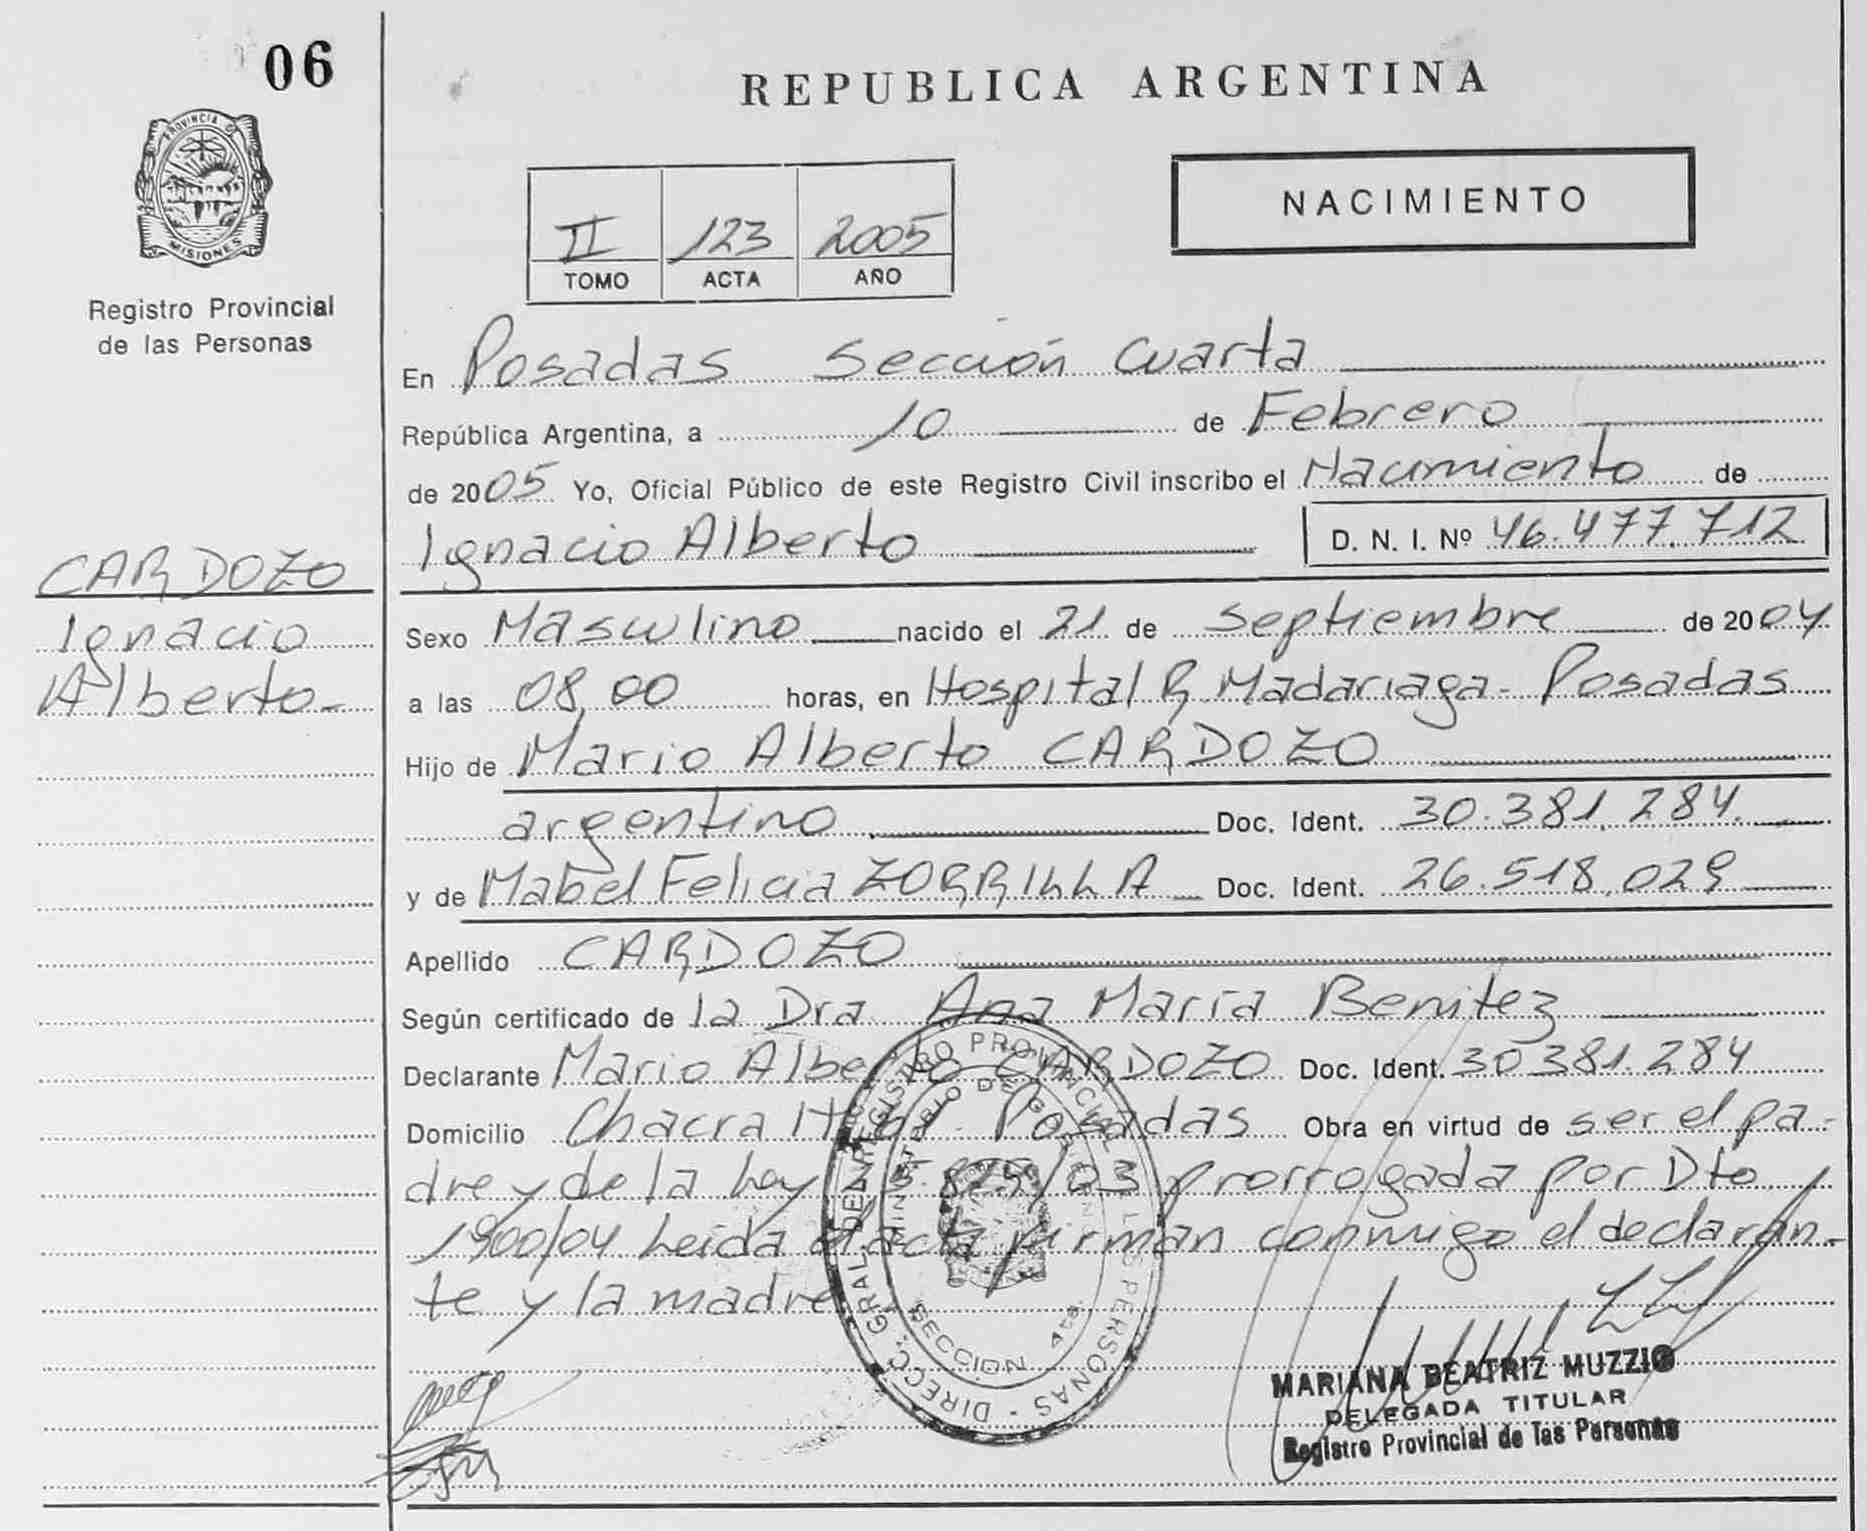 06
REPUBLICA ARGENTINA
PROVINCIA DE
MISIONES
Registro Provincial
de las Personas
NACIMIENTO
II 123 2005
TOMO ACTA AÑO
En Posadas Sección Cuarta
República Argentina, a 10 de Febrero
de 2005 Yo, Oficial Público de este Registro Civil inscribo el Nacimiento de
Ignacio Alberto D. N. I. Nº 46.477.712
CARDOZO
Ignacio
Alberto-
Sexo Masculino nacido el 21 de Septiembre de 2004
a las 08,00 horas, en Hospital R. Madariaga - Posadas
Hijo de Mario Alberto CARDOZO
argentino Doc. Ident. 30.381.284.
y de Mabel Felicia ZORRILLA Doc. Ident. 26.518.029
Apellido CARDOZO
Según certificado de la Dra. Ana María Benitez
Declarante Mario Alberto CARDOZO Doc. Ident. 30381.284
Domicilio Chacra Posadas Obra en virtud de ser el pa-
dre y de la Ley /03 prorrogada por Dto
1900/04 Leida el acta firman conmigo el declaran-
te y la madre
DIRECC. GRAL. DEL REGISTRO PROVINCIAL DE LAS PERSONAS
MINISTERIO DE GOBIERNO
SECCION 4ta.
MARIANA BEATRIZ MUZZIO
DELEGADA TITULAR
Registro Provincial de las Personas